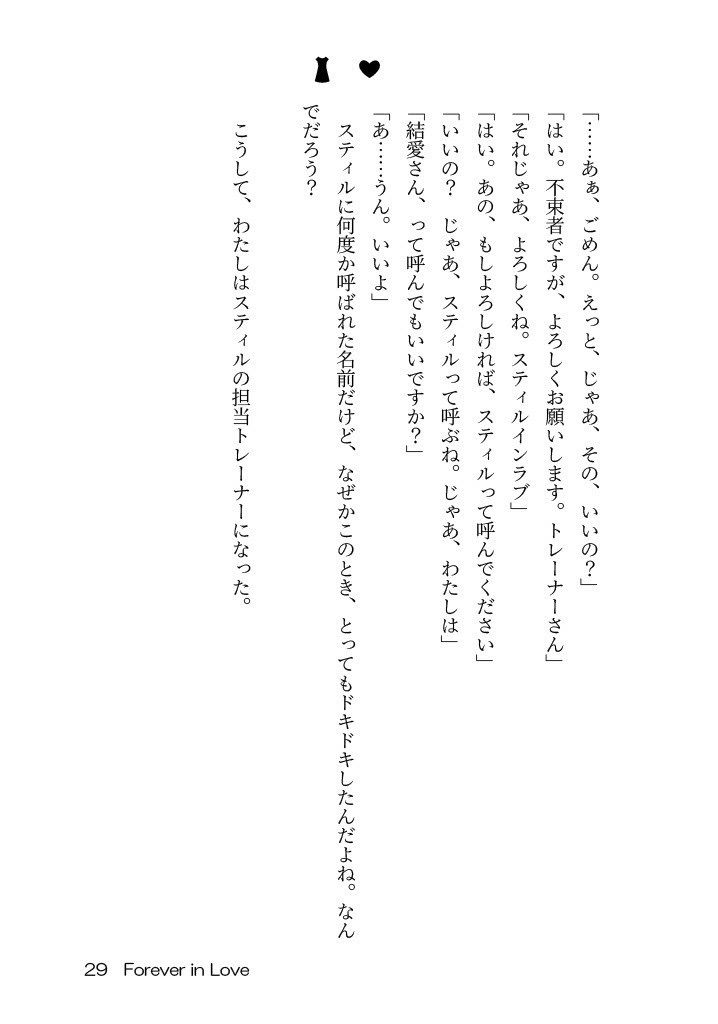 「……あぁ、ごめん。えっと、じゃあ、その、いいの？」
「はい。不束者ですが、よろしくお願いします。トレーナーさん」
「それじゃあ、よろしくね。スティルインラブ」
「はい。あの、もしよろしければ、スティルって呼んでください」
「いいの？　じゃあ、スティルって呼ぶね。じゃあ、わたしは」
「結愛さん、って呼んでもいいですか？」
「あ……うん。いいよ」
　スティルに何度か呼ばれた名前だけど、なぜかこのとき、とってもドキドキしたんだよね。なん
でだろう？
　こうして、わたしはスティルの担当トレーナーになった。
29 Forever in Love